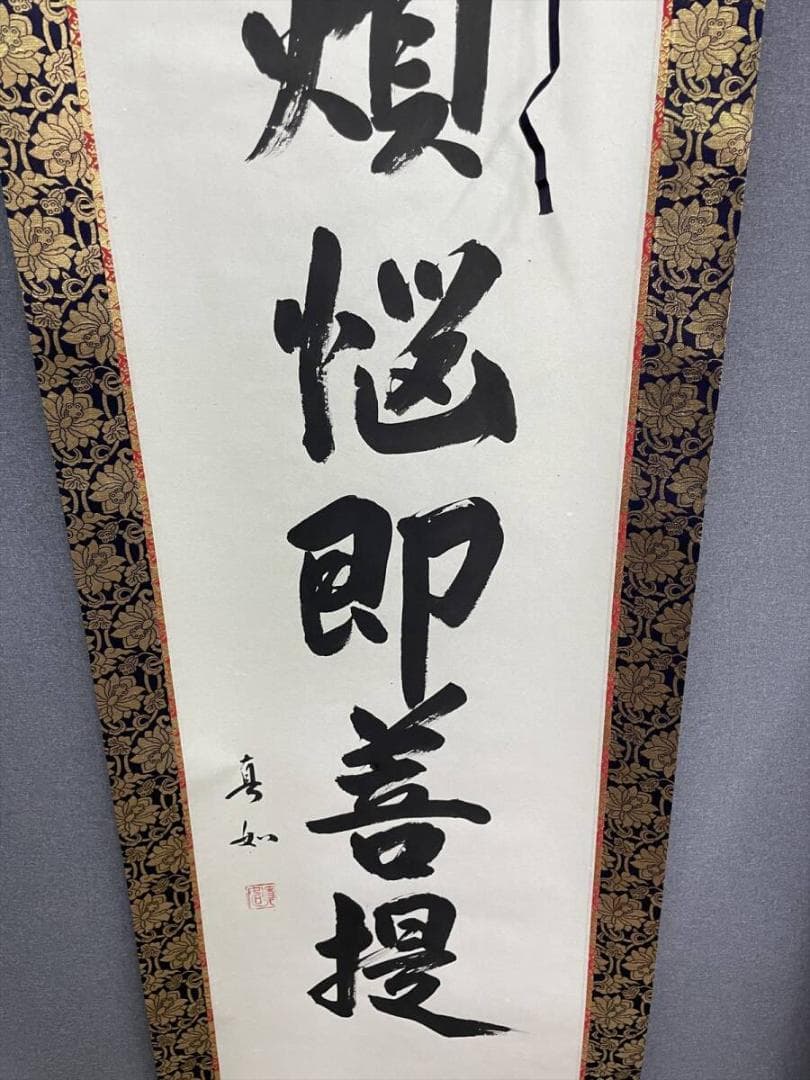 煩悩即菩提
真如